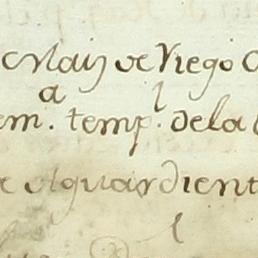 Maiz de Riego
em. temp. de la
Aguardient